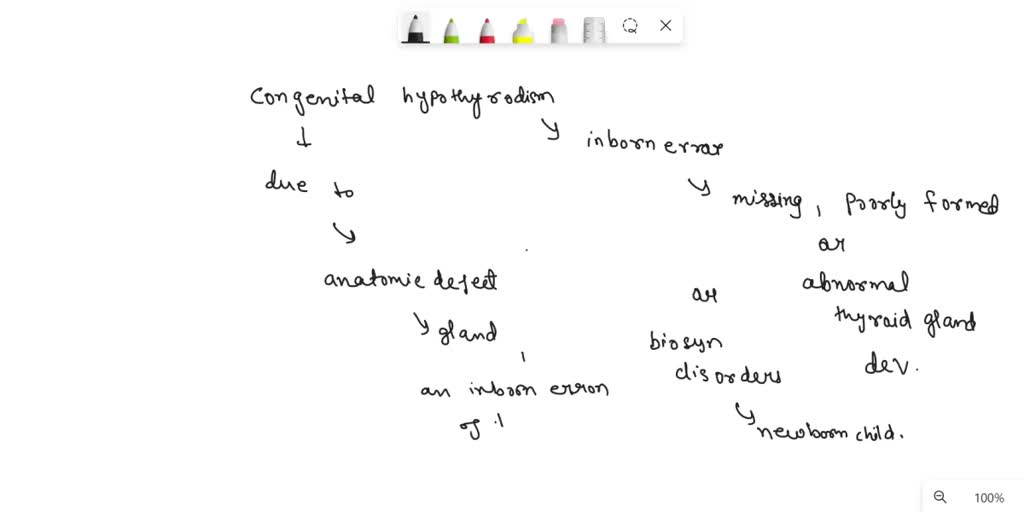 congenital hypothyrodism
inborn error
due to
missing, poorly formed
or
anatomic defect
abnormal
or
thyroid gland
gland,
biosyn
dev.
disorders
an inborn erron
of
newborn child.
100%